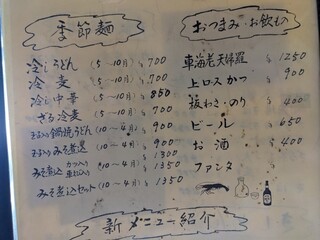 季節麺
冷しうどん (5〜10月) 〃700
冷麦 (5〜10月) 〃700
冷し中華 (5〜10月) 〃850
ざる冷麦 (5〜10月) 〃700
玉子入り鍋焼うどん (10〜4月) 〃900
玉子入りみそ煮込 (10〜4月) 〃900
みそ煮込 (10〜4月) 1300
みそ煮込セット (10〜4月) 1350
おつまみ お飲もの
車海老天婦羅 〃1250
上ロースかつ 〃900
板わさ・のり 〃400
ビール 〃650
お酒 〃400
ファンタ
新メニュー紹介